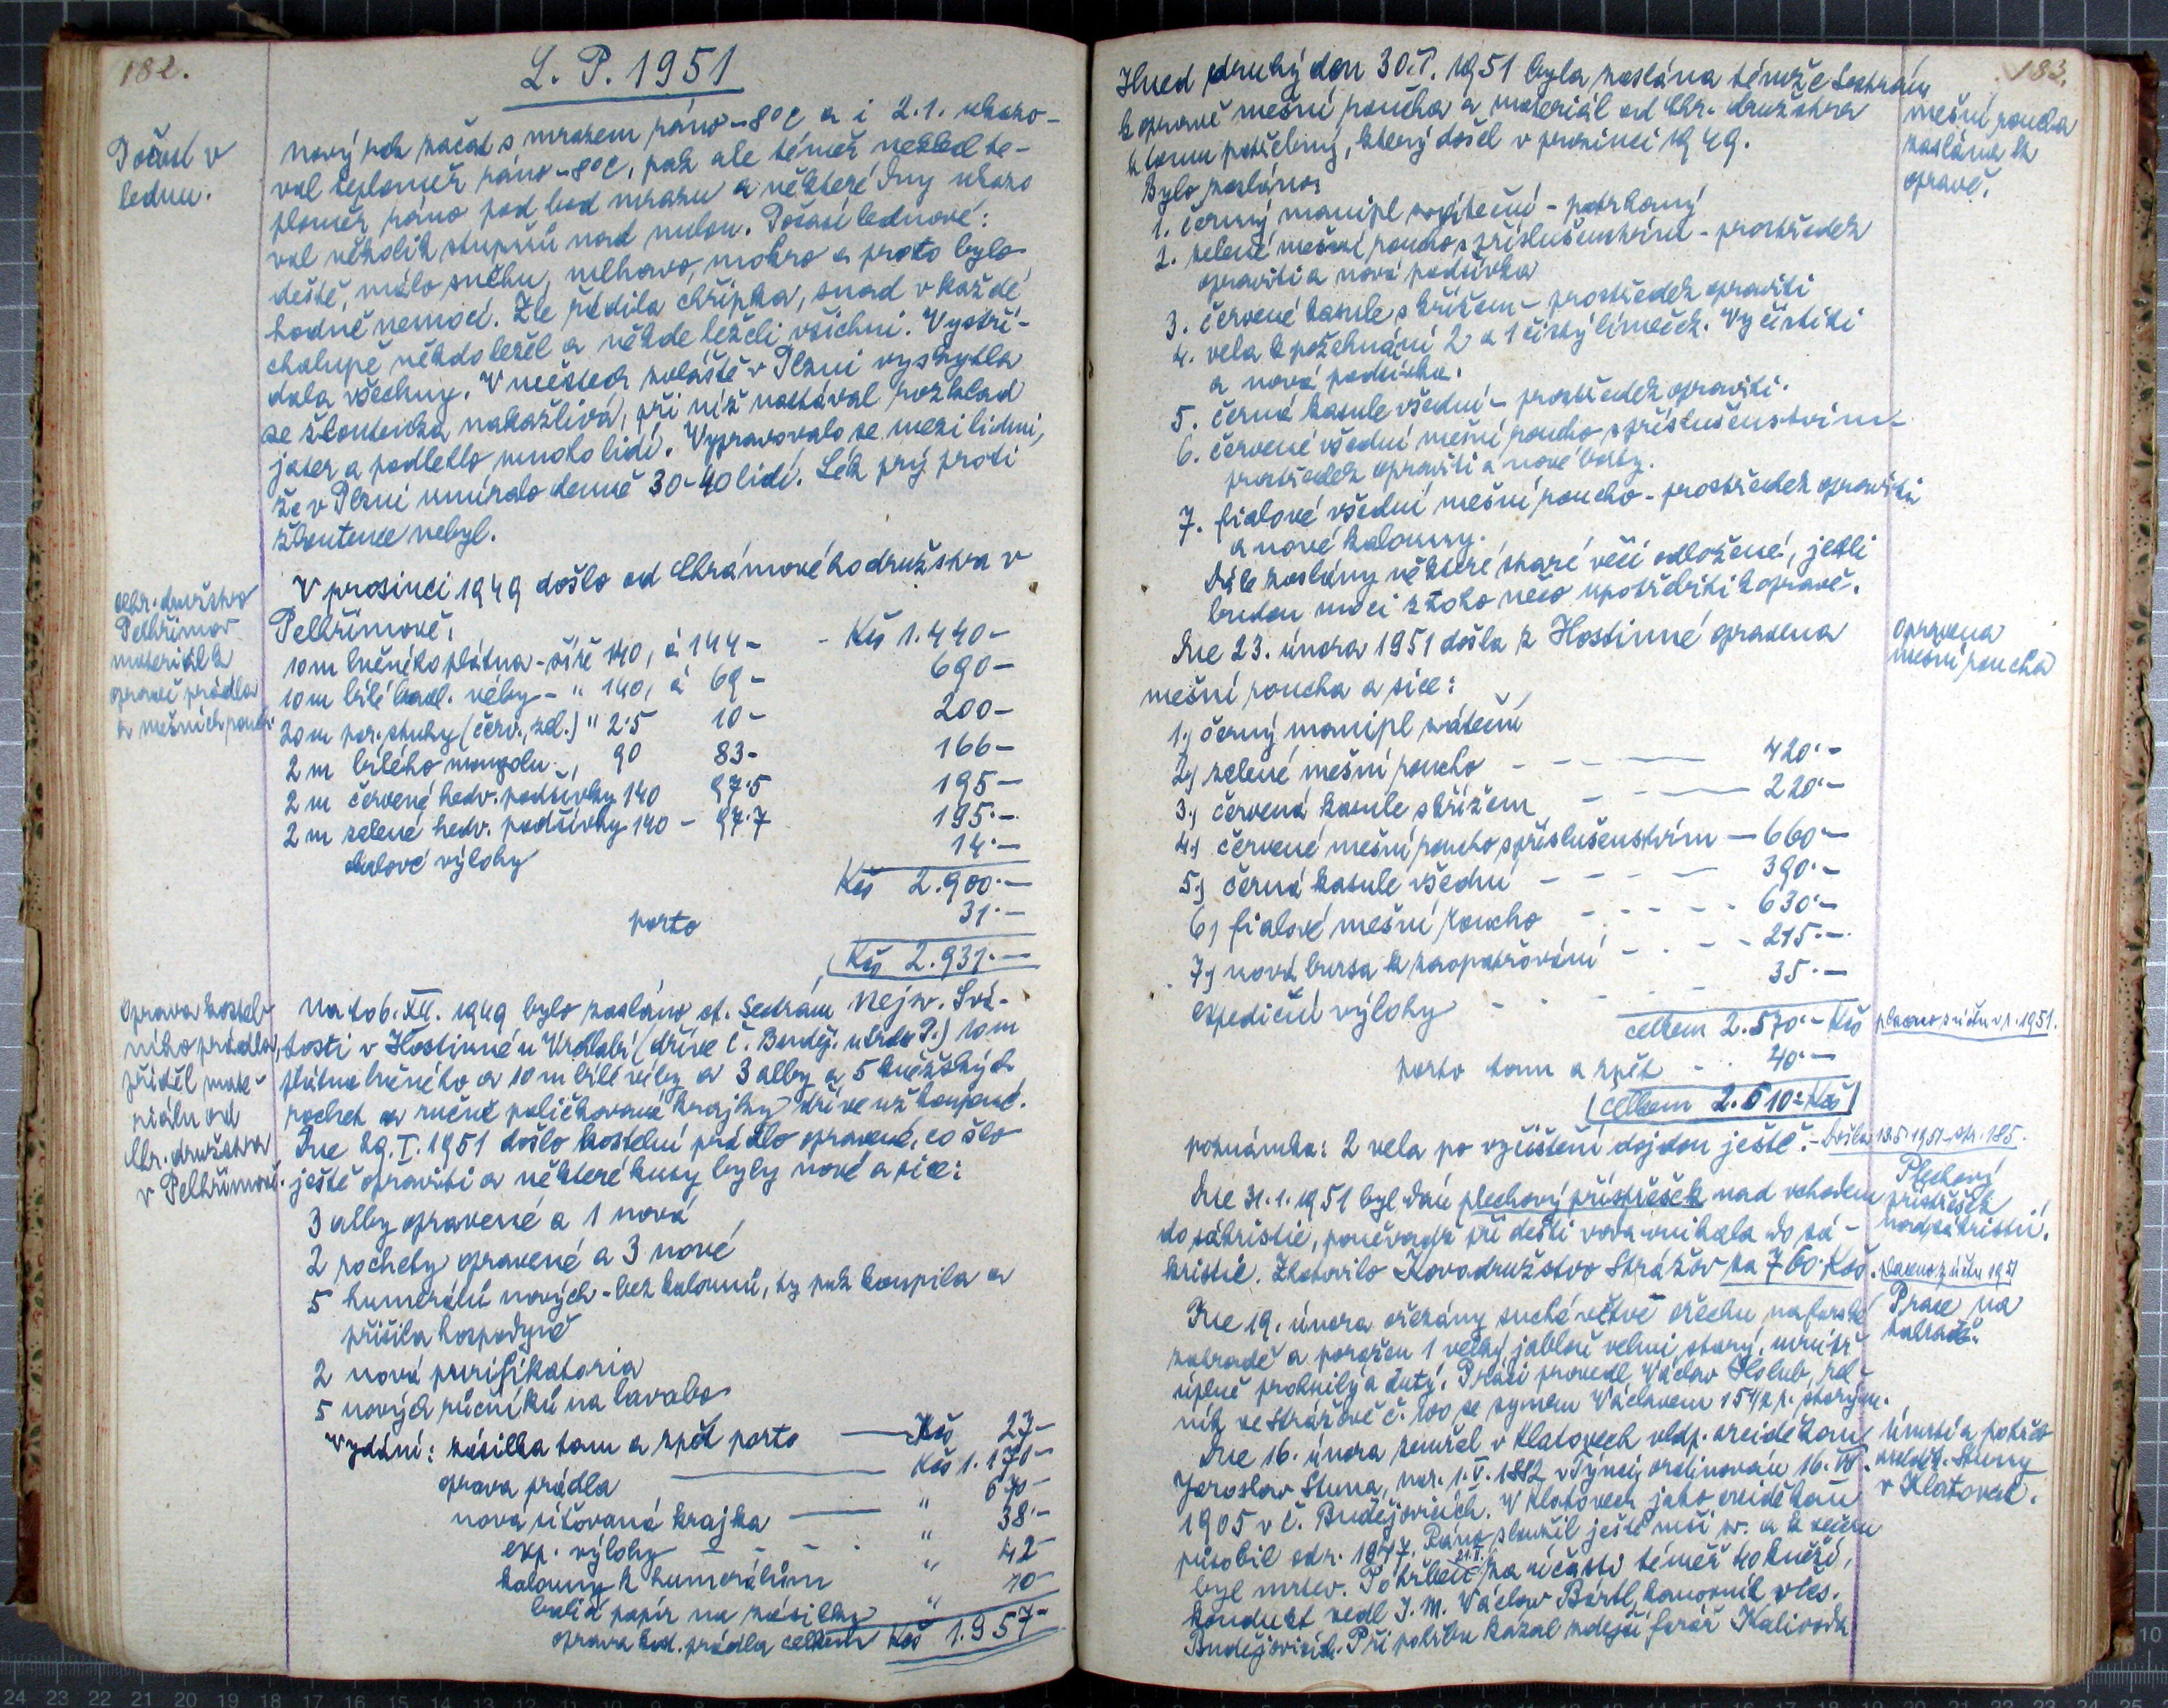 182.
L. P. 1951
Počasí v
lednu.
Nový rok začal s mrazem ráno -8°C a i 2.1. ukazo-
val teploměr ráno -8°C, pak ale téměř neklel te-
ploměr ráno pod bod mrazu a některé dny ukazo
val několik stupňů nad nulou. Počasí lednové:
deště, málo sněhu, mlhavo, mokro a proto bylo
hodně nemocí. Zle řádila chřipka, snad v každé
chalupě někdo ležel a někde leželi všichni. Vystří-
dala všechny. V městech zvláště v Plzni vyskytla
se žloutenka nakažlivá, při níž nastával rozklad
jater a podlehlo mnoho lidí. Vypravovalo se mezi lidmi,
že v Plzni umíralo denně 30-40 lidí. Lék prý proti
žloutence nebyl.
chr. družstvo
Pelhřimov
materiál k
opravě prádla
a mešních rouch.
V prosinci 1949 došlo od Chrámového družstva v
Pelhřimově:
10 m lněného plátna - šíře 140, á 144- - Kčs 1.440-
10 m bílé bavl. věby - " 140, á 69- 690-
20 m por. stuhy (červ., zel.) " 2.5 10- 200-
2 m bílého mongolu " 90 83- 166-
2 m červené hedv. podšívky 140 97.5 195-
2 m zelené hedv. podšívky 140 - 97.7 195.-
balové výlohy 14.-
Kčs 2.900.-
porto 31.-
Kčs 2.931.-
Oprava kostel-
ního prádla,
příděl mate-
riálu od
Chr. družstva
v Pelhřimově.
Nato 6. XII. 1949 bylo zasláno ct. Sestrám Nejsv. Svá-
tosti v Hostinné u Vrchlabí (dříve Č. Buděj. u Srdce P.) 10 m
plátna lněného a 10 m bílé věby a 3 alby a 5 kněžských
rochet a ručně paličkované krajky dříve už koupené.
Dne 29. I. 1951 došlo kostelní prádlo opravené, co šlo
ještě opraviti a některé kusy byly nové a sice:
3 alby opravené a 1 nová
2 rochety opravené a 3 nové
5 humerálů nových - bez kalounů, ty pak koupila a
přišila hospodyně
2 nová purifikatoria
5 nových ručníků na lavabo
Vydání: zásilka tam a zpět porto Kčs 27-
oprava prádla Kčs 1.170-
nová síťovaná krajka " 670-
exp. výlohy - - - - " 38.-
kalouny k humerálům " 42-
balicí papír na zásilky " 10-
oprava kost. prádla celkem Kčs 1.957-
183.
Hned druhý den 30. I. 1951 byla zaslána témže Sestrám
k opravě mešní roucha a materiál od Chr. družstva
k tomu potřebný, který došel v prosinci 1949.
Bylo zasláno:
mešní roucha
zaslána k
opravě.
1. černý manipl sváteční - potrhaný
2. zelené mešní roucho s příslušenstvím - prostředek
opraviti a nová podšívka
3. červené kasule s křížem - prostředek opraviti
4. vela k požehnání 2 a 1 čistý límeček. Vyčistiti
a nová podšívka.
5. černá kasule všední - prostředek opraviti.
6. červené všední mešní roucho s příslušenstvím -
prostředek opraviti a nové borty.
7. fialové všední mešní roucho - prostředek opraviti
a nové kalouny.
Dále zaslány některé staré věci odložené, jestli
budou moci z toho něco upotřebiti k opravě.
Dne 23. února 1951 došla z Hostinné opravena
mešní roucha a sice:
Opravena
mešní roucha
1.) černý manipl sváteční
2.) zelené mešní roucho - - - - 420.-
3.) červená kasule s křížem - - - 220.-
4.) červené mešní roucho s příslušenstvím - 660.-
5.) černá kasule všední - - - - 390.-
6.) fialové mešní roucho - - - - 630.-
7.) nová bursa k zaopatřování - - - 215.-
expediční výlohy - - - - 35.-
celkem 2.570.- Kčs
placeno z účtu v r. 1951.
porto tam a zpět - . 40.-
celkem 2.610.- Kčs
poznámka: 2 vela po vyčištění dojdou ještě. - Došla 13.5.1951 - str. 185.
Dne 31.1.1951 byl dán plechový přístřešek nad vchodem
do sákristie, poněvadž při dešti voda vnikala do sá-
kristie. Zhotovilo Kovodružstvo Strážov za 760.- Kčs.
Plechový
přístřešek
nad sákristií.
placeno z účtu 1951
Dne 19. února ořezány suché větve ořechu na farské
zahradě a poražen 1 velký jabloň velmi starý, uvnitř
úplně prohnilý a dutý. Práci provedl Václav Holub, rol-
ník ve Strážově č. 100 se synem Václavem 15 1/2 r. starým.
Práce na
zahradě.
Dne 16. února zemřel v Klatovech vldp. arciděkan
Jaroslav Stuna, nar. 1. V. 1882 v Týnci, ordinován 16. VII.
1905 v Č. Budějovicích. V Klatovech jako arciděkan
působil od r. 1947. Ráno sloužil ještě mši sv. a k večeru
byl mrtev. Pohřben 21.II. za účasti téměř 40 kněží,
kondukt vedl J. M. Václav Bártl, kanovník v Čes.
Budějovicích. Při pohřbu kázal zdejší farář Kalivoda
Úmrtí a pohřeb
arciděk. Stuny
v Klatovech.